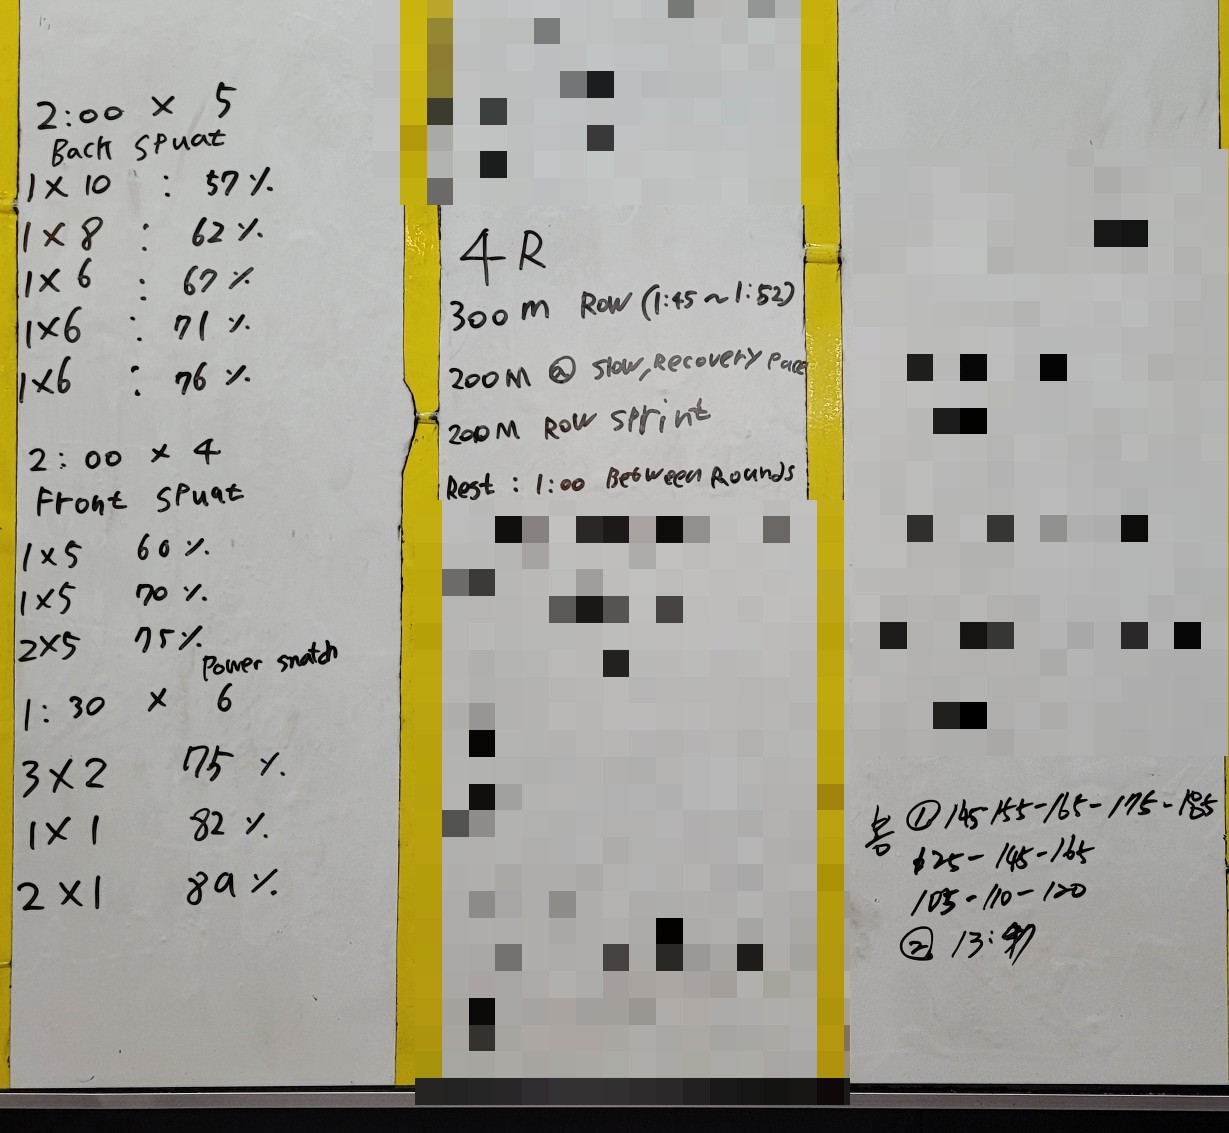 2:00 × 5
Back SPuat
1 × 10 : 57 %
1 × 8 : 62 %
1 × 6 : 67 %
1×6 : 71 %
1×6 : 76 %
2:00 × 4
Front SPuat
1×5 60 %
1×5 70 %
2×5 75 %
Power snatch
1:30 × 6
3×2 75 %
1×1 82 %
2×1 89 %
4 R
300 M Row (1:45 ~ 1:52)
200M @ Slow, Recovery Pace
200M Row Sprint
Rest : 1:00 Between Rounds
① 145-155-165-175-185
125-145-165
105-110-120
② 13: